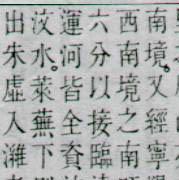 南境。又經寧
西南境之南
六分以接臨
運河皆全資
汶水。萊蕪下
出朱虛入濰